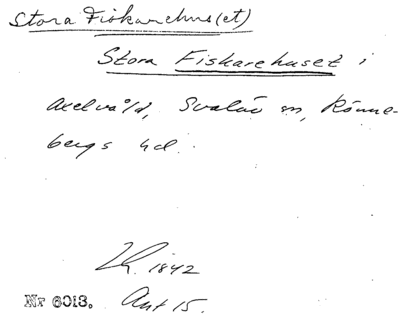 Stora Fiskarehus(et)
Stora Fiskarehuset i
Axelvåld, Svalöv sn, Rönne-
bergs hd.
1842
Nr 6013. Ant 15.